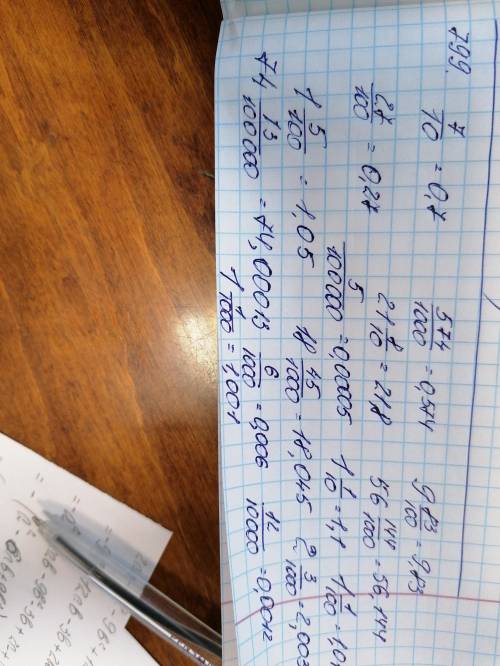 799. 7/10 = 0,7 574/1000 = 0,574 9 83/100 = 9,83
27/100 = 0,27 21 8/10 = 21,8 56 144/1000 = 56,144
5/100000 = 0,00005 1 1/10 = 1,1 1 1/100 = 1,01
1 5/100 = 1,05 18 45/1000 = 18,045 2 3/1000 = 2,003
74 13/100000 = 74,00013 6/1000 = 0,006 12/10000 = 0,0012
1 1/1000 = 1,001